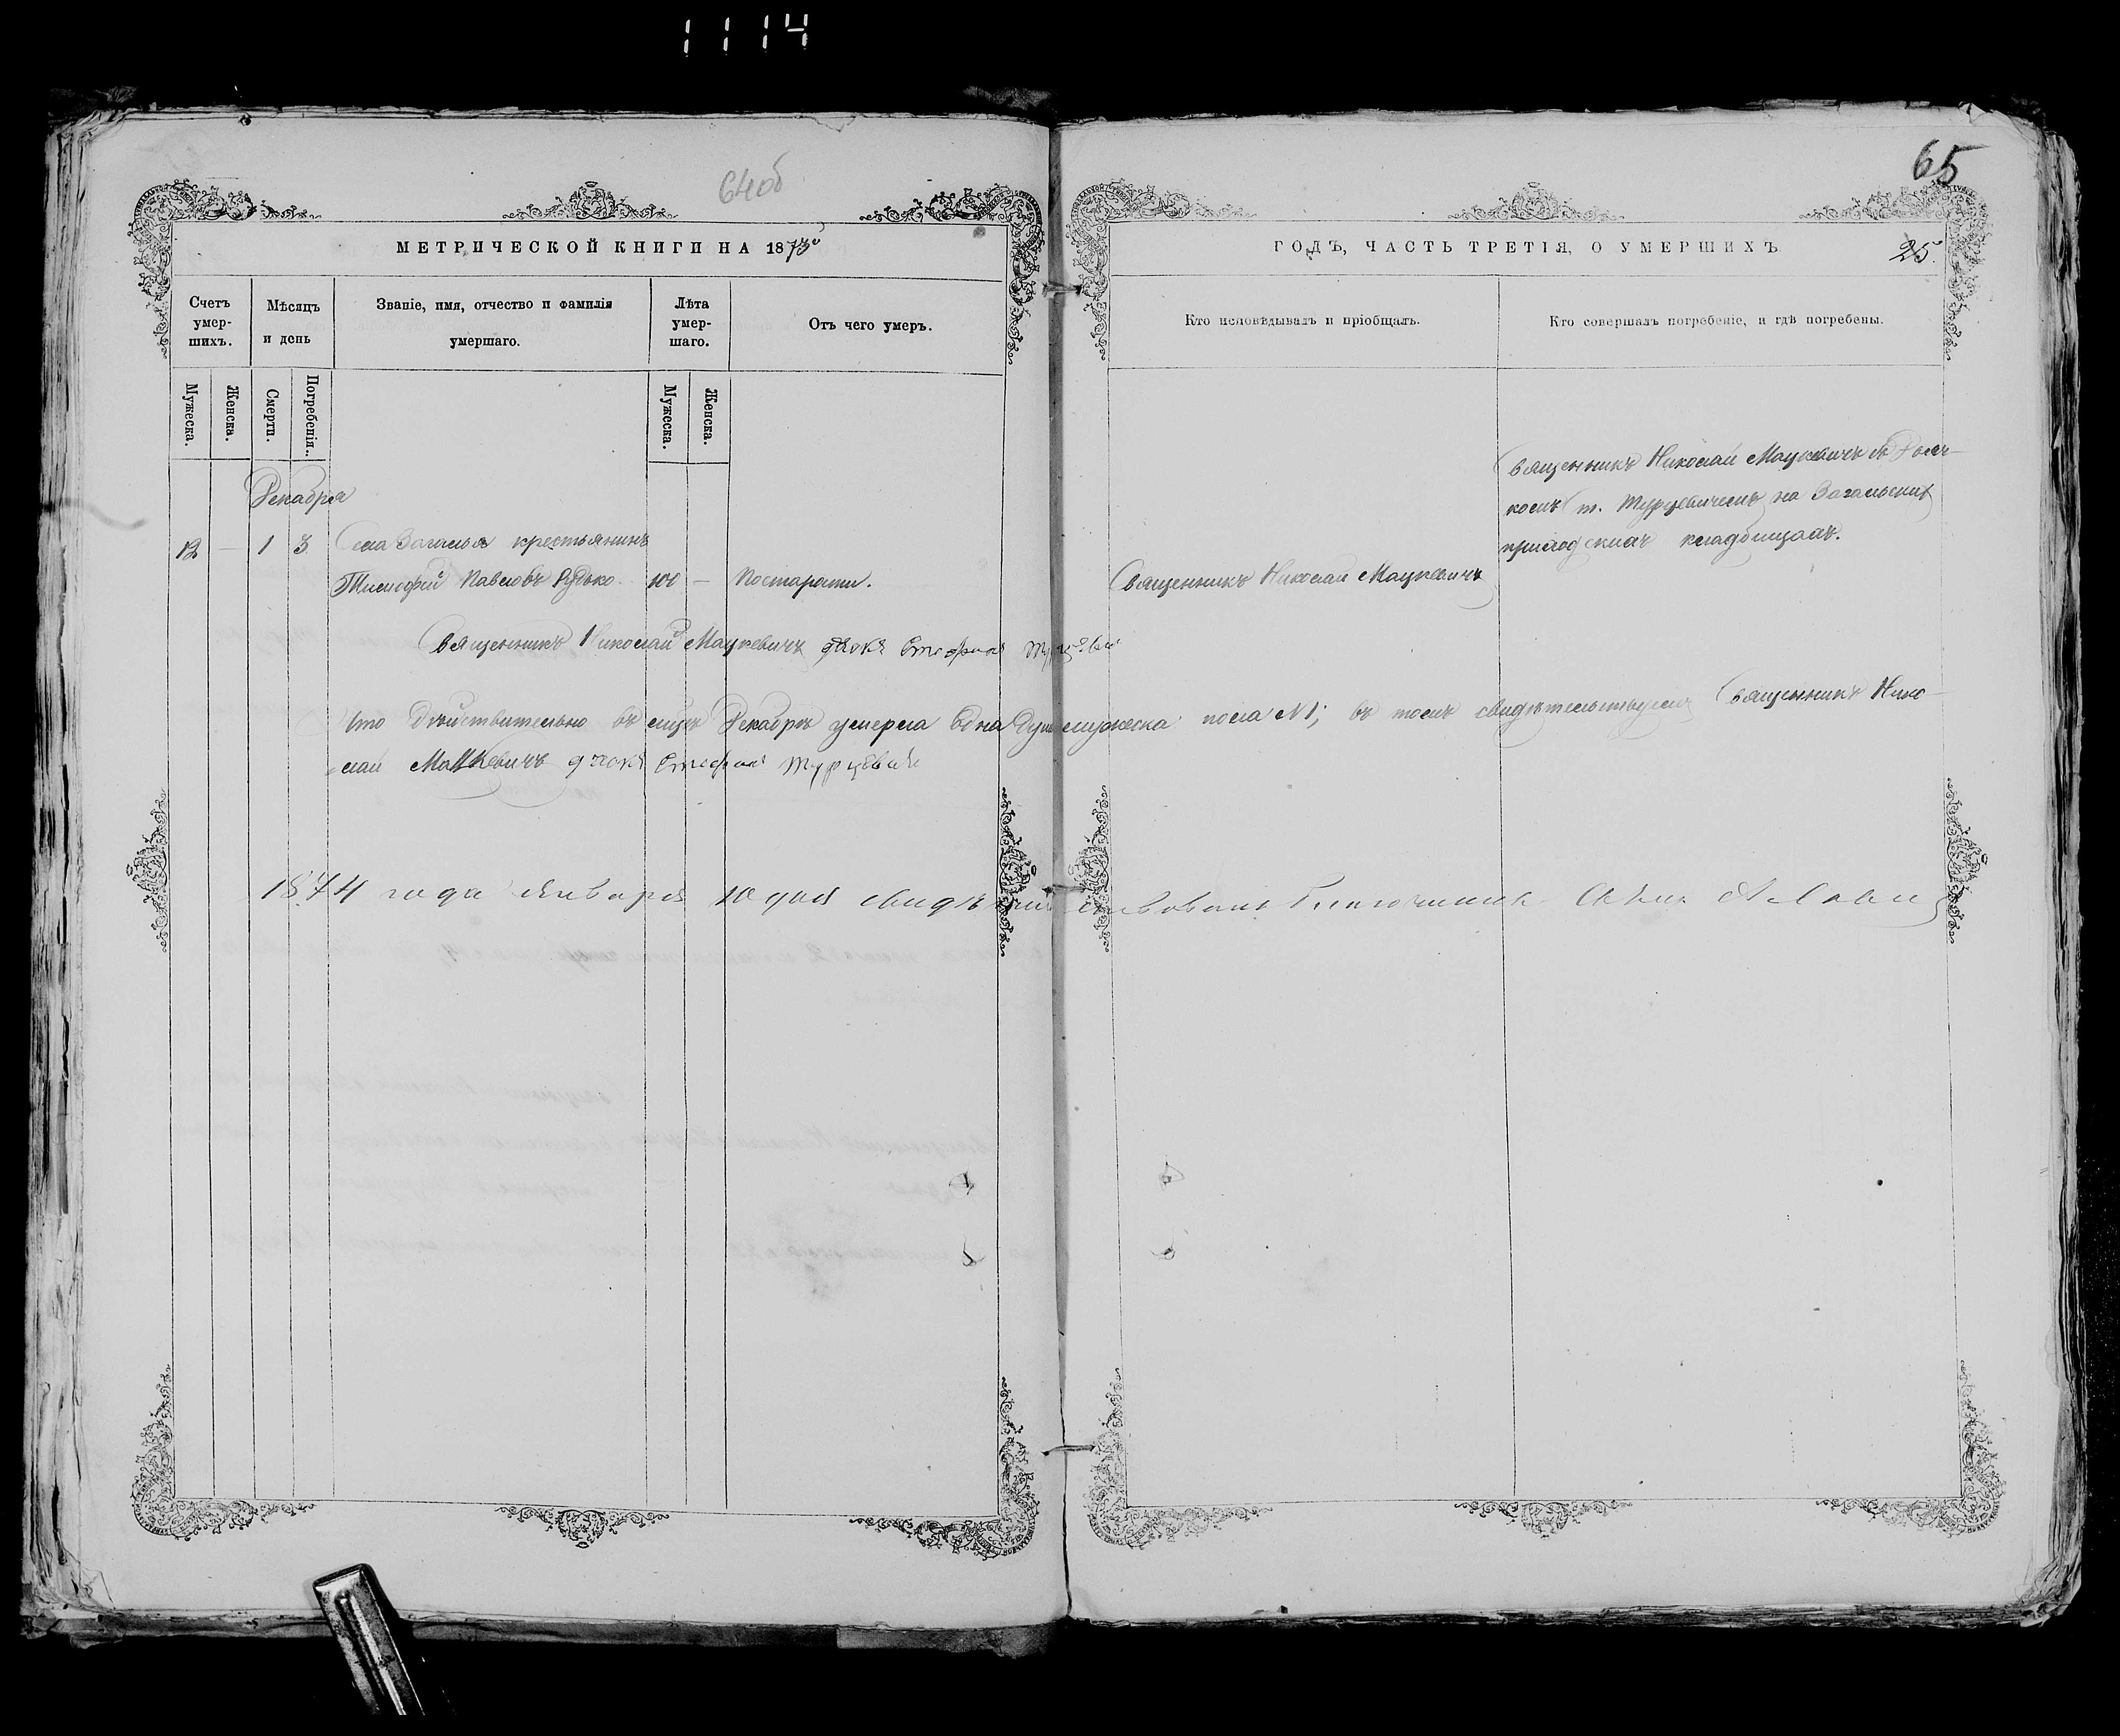 1114
64об
65
МЕТРИЧЕСКОЙ КНИГИ НА 1873
ГОДЪ, ЧАСТЬ ТРЕТІЯ, О УМЕРШИХЪ
25.
Счетъ умер-шихъ.
Мѣсяцъ и день
Званіе, имя, отчество и фамилія умершаго.
Лѣта умер-шаго.
Отъ чего умеръ.
Кто исповѣдывалъ и пріобщалъ.
Кто совершалъ погребеніе, и гдѣ погребены.
Мужеска.
Женска.
Смерти.
Погребенія.
Мужеска.
Женска.
Декабря
12 — 1 3 Села Загалья крестьянинъ
Тимофей Павловъ Рудько. 100 — Постарости.
Священникъ Николай Мацкевичъ
Священникъ Николай Мацкевичъ съ Дьяч-
комъ Ст. Турцевичемъ на Загальскихъ
приходскихъ кладбищахъ.
Священникъ Николай Мацкевичъ дьякъ Стефанъ
Что действительно въ мцѣ Декабрѣ умерла одна душа мужеска пола №1; въ томъ свидѣтельствуемъ Священникъ Нико-
лай Мацкевичъ дьякъ Стефанъ Турцевичъ
1874 года Января 10 дня свидѣтельствовалъ Благочинный